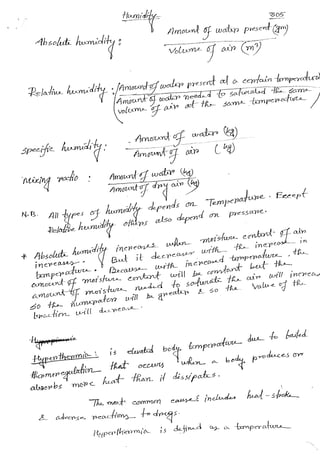 Humidity
305
Absolute humidity : Amount of water present (gm)
Volume of air (m³)
Relative humidity : Amount of water present at a certain temperature
Amount of water needed to saturated the same
volume of air at the same temperature
Specific humidity : Amount of water (kg)
Amount of air (kg)
Mixing ratio : Amount of water (kg)
Amount of dry air (kg)
N.B. All types of humidity depends on Temperature. Except
Relative humidity others also depend on pressure.
* Absolute humidity increases when moisture content of air
increases. But it decreases with the increase in
temperature. Because with increased temperature, the
amount of moisture content will be constant but the
amount of moisture needed to saturate the air will increase
so the numerator will be greater & so the value of the
fraction will decrease.
Hyperthermia : is elevated body temperature due to failed
thermoregulation that occurs when a body produces or
absorbs more heat than it dissipates.
The most common causes includes heat-stroke
& adverse reactions to drugs.
Hyperthermia is defined as a temperature